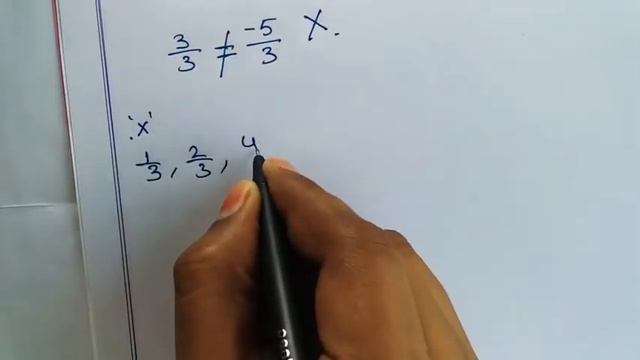 3/3 ≠ -5/3 X.
'x'
1/3, 2/3, 4